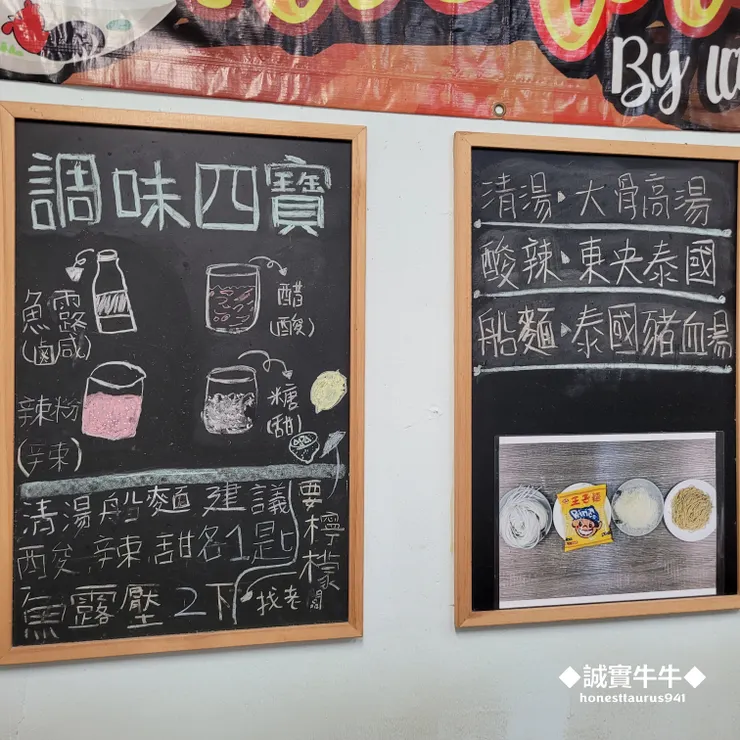 By
調味四寶
魚露
(鹵咸)
醋
(酸)
辣粉
(辛)
糖
(甜)
清湯船麵建議
酸辣甜各1匙
魚露壓2下
要檸檬
找老闆
清湯·大骨高湯
酸辣·東央泰國
船麵·泰國豬血湯
王子麵
◆誠實牛牛◆
honesttaurus941